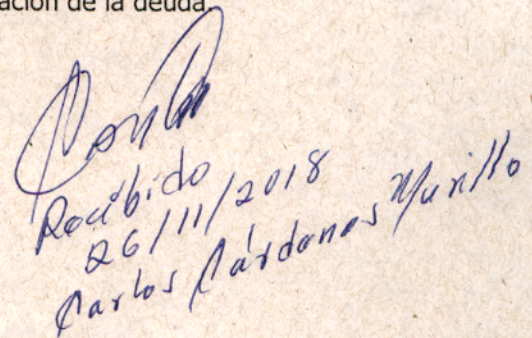 ación de la deuda.
Recibido
26/11/2018
Carlos Cárdenas Murillo